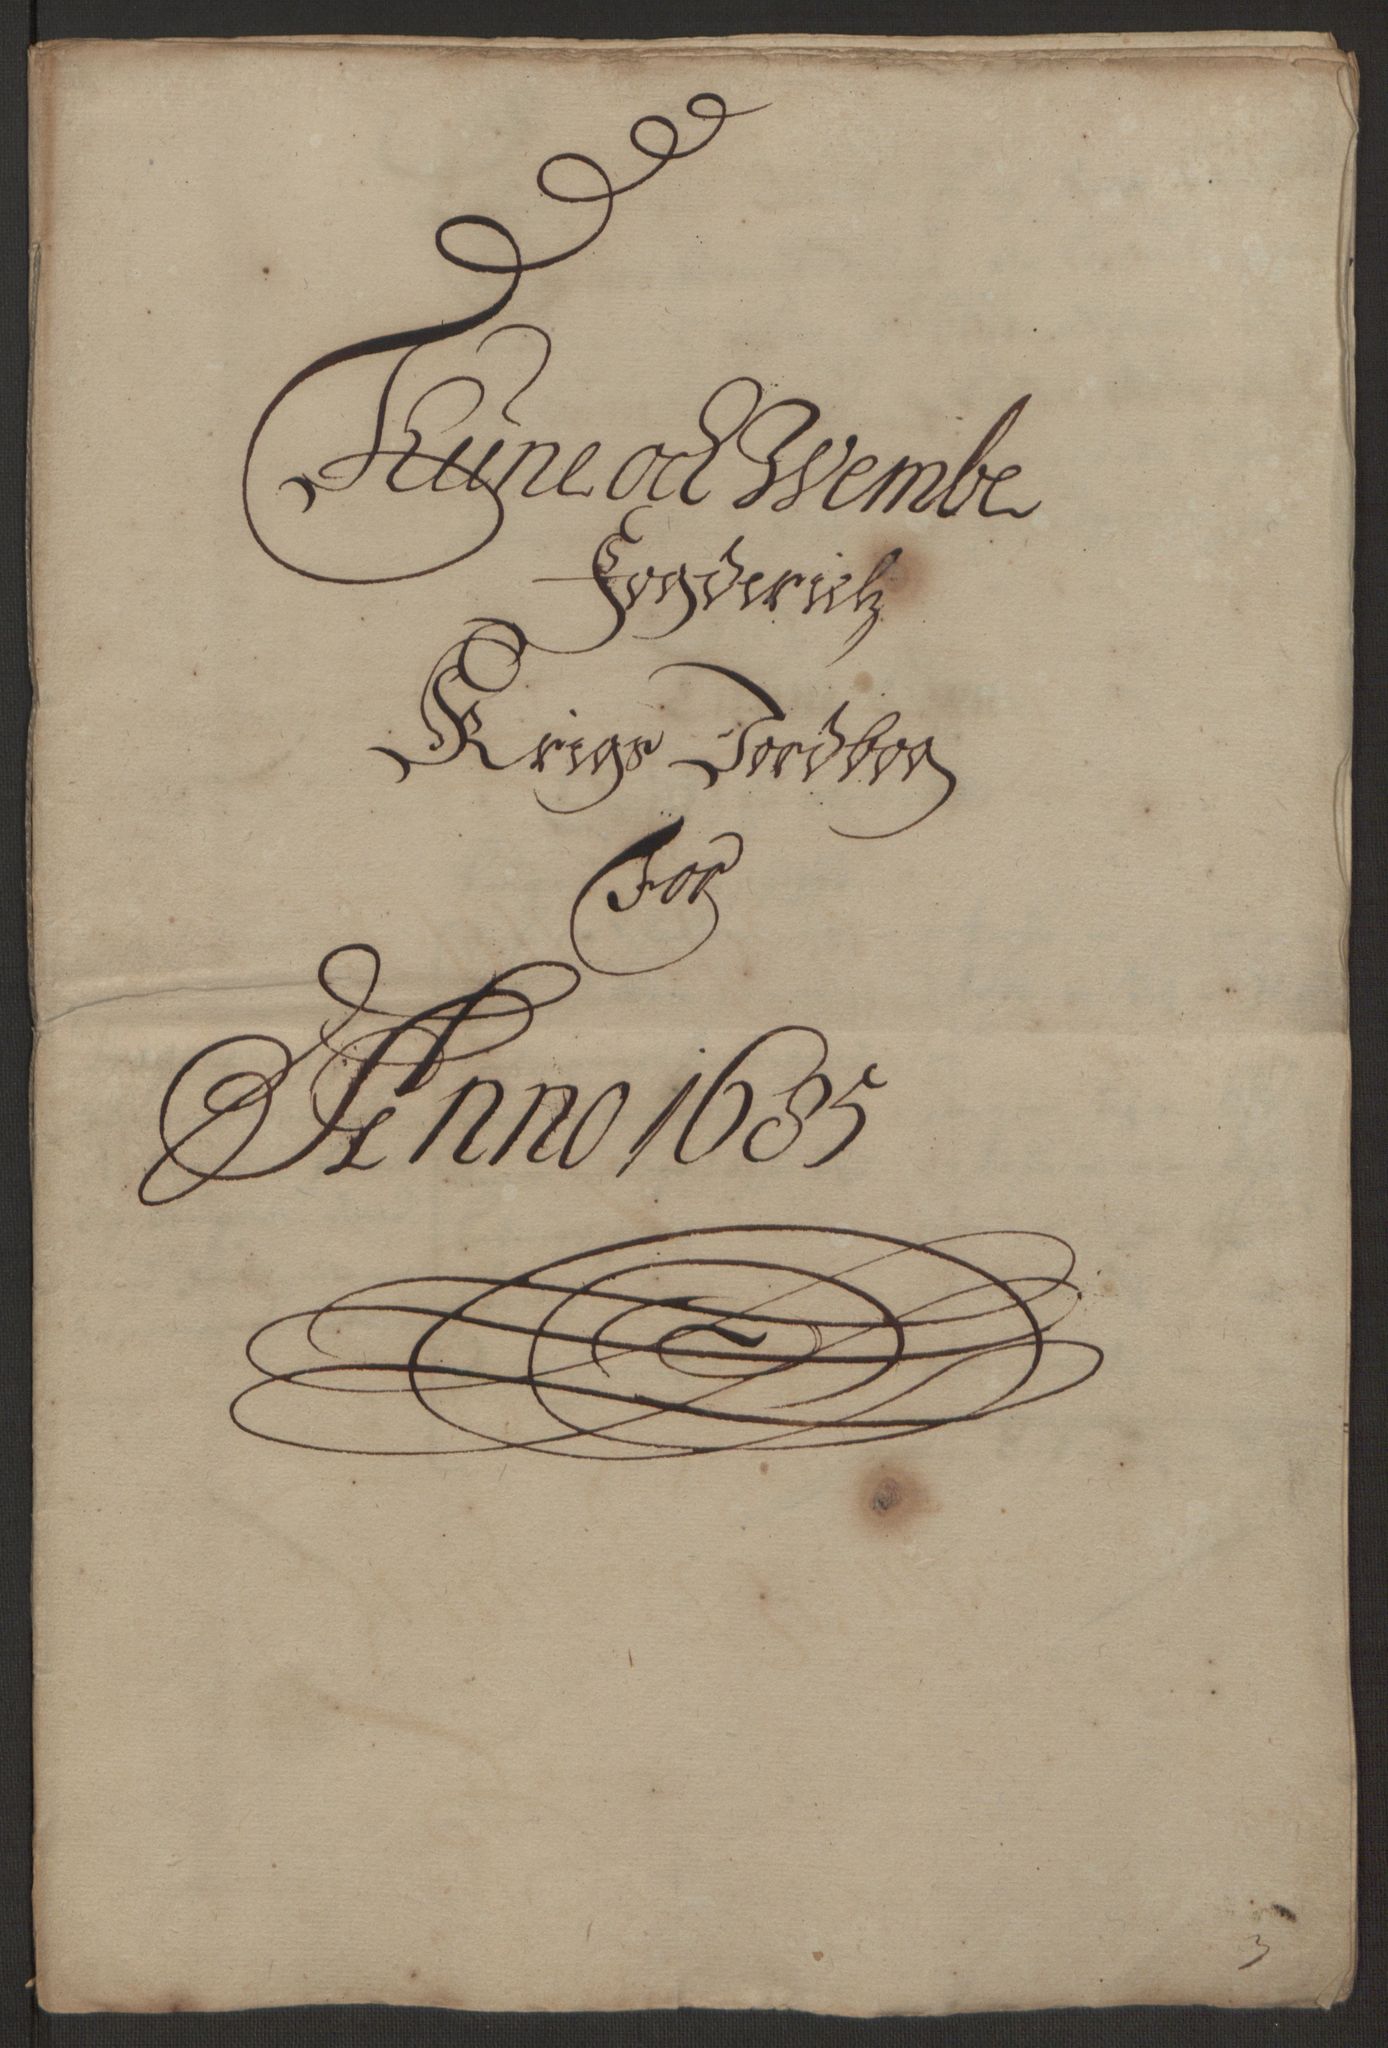 Tune och Wembe
Fogderietz
Krigs Jordbog
For
Anno 1685
3